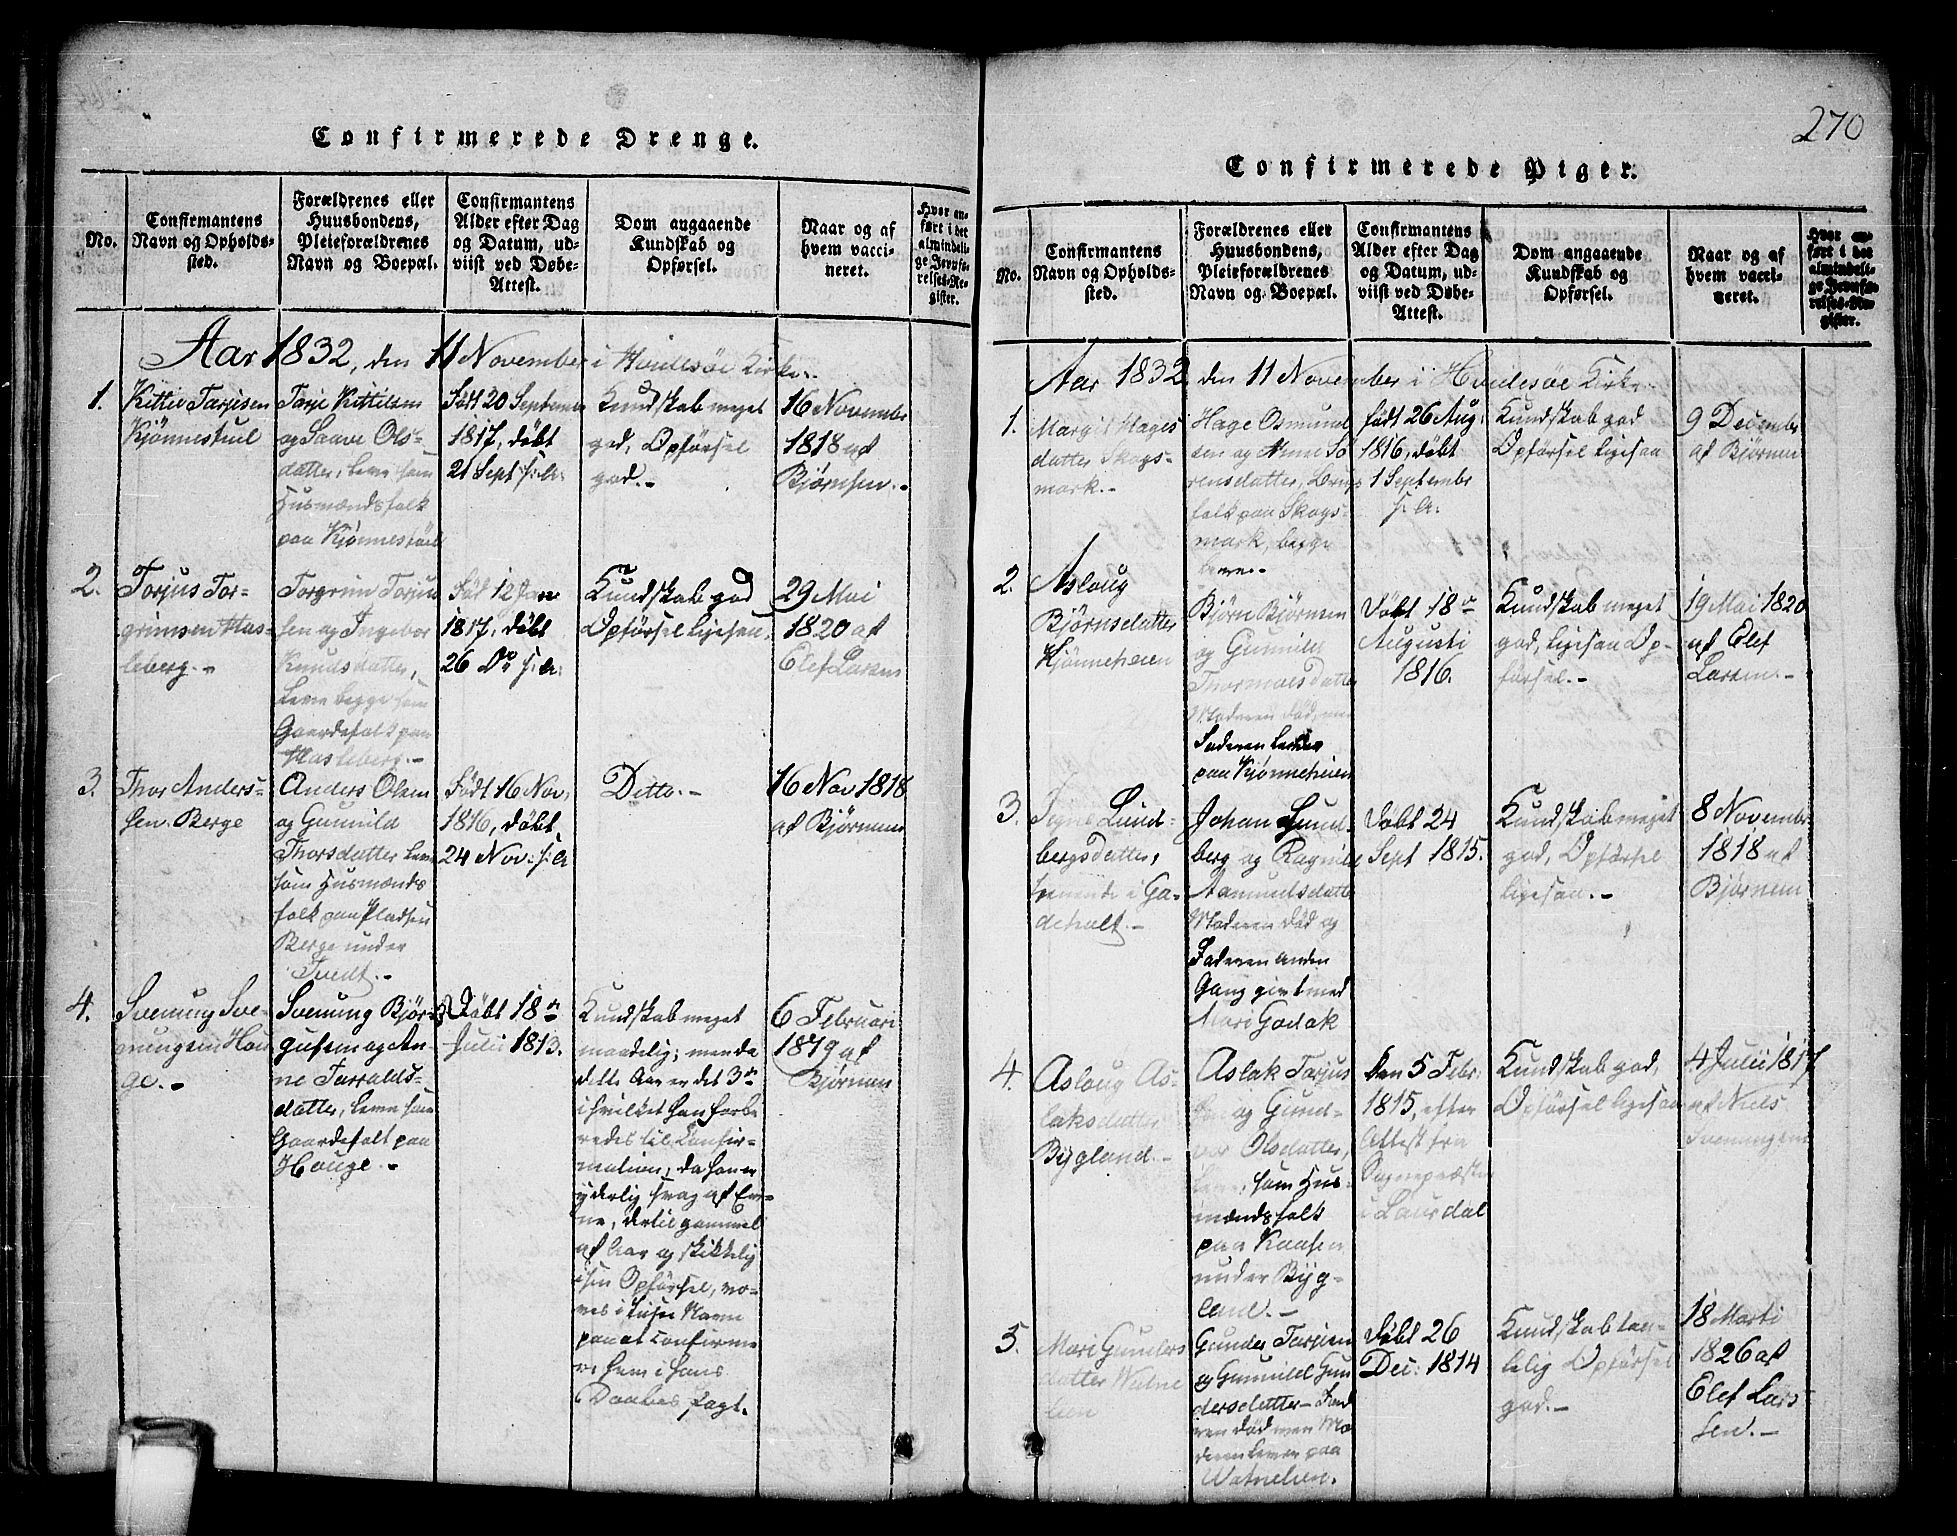 Confirmerede Drenge.
No.
Confirmantens
Navn og Opholds-
sted.
Forældrenes eller
Huusbondens,
Pleieforældrenes
Navn og Boepæl.
Confirmantens
Alder efter Dag
og Datum, ud-
viist ved Døbe-
Attest.
Dom angaaende
Kundskab og
Opførsel.
Naar og af
hvem vacci-
neret.
Hvor an-
ført i det
almindeli-
ge Jevnfø-
relses-Re-
gister.
Aar 1832, den 11 November i Hvidesøe Kirke.
1.
Kittil Tarjesen
Kjønnestuel
Tarje Kittilsen
og Saave Ols-
datter, leve som
Husmændsfolk
paa Kjønnestuel
Født 20 Septembr
1817, døbt
21 Sept: s: A:
Kundskab meget
god, Opførsel
god.-
16 Novembr
1818 af
Bjørnsen.-
2.
Torjus Tor-
grimsen Has-
leberg.-
Torgrim Torjus
sen og Ingebor
Knudsdatter,
leve begge som
Gaardefolk paa
Hasleberg.-
Född 12 Jan
1817, døbt
26 Do s: A:
Kundskab god
Opførsel ligesaa.
29 Mai
1820 af
Olef Larsen
3.
Thor Anders-
sen Berge
Anders Olsen
og Gunnild
Thorsdatter leve
som Husmænds
folk paa Pladsen
Berge under
Tvedt.-
Født 16 Nov:
1816, døbt
24 Nov: s: A
Ditto.-
16 Nov 1818
af Bjørnsen
4.
Svenung Sve-
nungsen Hou
ge.-
Svenung Bjør-
gufsen og An-
ne Tarralds-
datter, leve som
Gaardefolk paa
Houge.-
Døbt 18de
Julii 1813.
Kundskab meget
maadelig; men da
dette Aar er det 3de
i hvilket han forbe
redes til Confir-
mation, da han er
yderlig svag af Ev-
ne, dertil gammel
af Aar og skikkelig
i sin Opførsel, vo-
ves i Jesu Navn
paa at confirme
re ham i hans
Daabes Pagt.
6 Februari
1819 af
Bjørnsen
270
Confirmerede Piger.
No.
Confirmantens
Navn og Opholds-
sted.
Forældrenes eller
Huusbondens,
Pleieforældrenes
Navn og Boepæl.
Confirmantens
Alder efter Dag
og Datum, ud-
viist ved Døbe-
Attest.
Dom angaaende
Kundskab og
Opførsel.
Naar og af
hvem vacci-
neret.
Hvor an-
ført i det
almindeli-
ge Jevnfø-
relses-Re-
gister.
Aar 1832 den 11 November i Hvidesøe Kirke
1.
Margit Hages
datter Skogs-
mark.-
Hage Osmund
sen og Anne So
rensdatter, Brugs
folk paa Skogs-
mark, begge
leve.-
født 26 Aug:
1816, døbt
1 Septembr
s: A:
Kundskab god
Opførsel ligesaa
9 Decembr
af Bjørnsen
2.
Asloug
Bjørnsdatter
Kjønneheien
Bjørn Bjørnsen
og Gunnild
Thormoesdatter
Moderen død, men
Faderen lever
paa Kjønneheien
Døbt 18de
Augusti
1816.
Kundskab meget
god, ligesaa Op-
førsel.-
19 Mai 1820
af Olef
Larsen.-
3.
Signe Lund-
bergsdatter,
tjenende i Ga-
deholt.-
Johan Lund-
berg og Ragnild
Aamundsdatter
Moderen død og
Faderen anden
Gang givt med
Mari Godak
Døbt 24
Sept 1815.
Kundskab meget
god, Opførsel
ligesaa.-
8 Novembr
1818 af
Bjørnsen
4.
Asloug As-
laksdatter
Bygland.-
Aslak Tarjus
sen og Gund-
vor Olsdatter,
leve, som Hus-
mændsfolk
paa Kaasen
under Byg-
land.-
den 5 Febr:
1815, efter
Attest fra
Sognepræsten
i Laurdal
Kundskab god,
Opførsel ligesaa
4 Julii 1817
af Niels
Svenungsen
5.
Mari Gunders
datter Watne
lien
Gunder Tarjesen
og Gunnild Gun
dersdatter- Fade
ren død men Mo
deren lever paa
Watnelien.
Døbt 26
Dec: 1814
Kundskab taa-
lelig Opførsel
god.-
18 Marti
1826 af
Olef Lars
sen.-